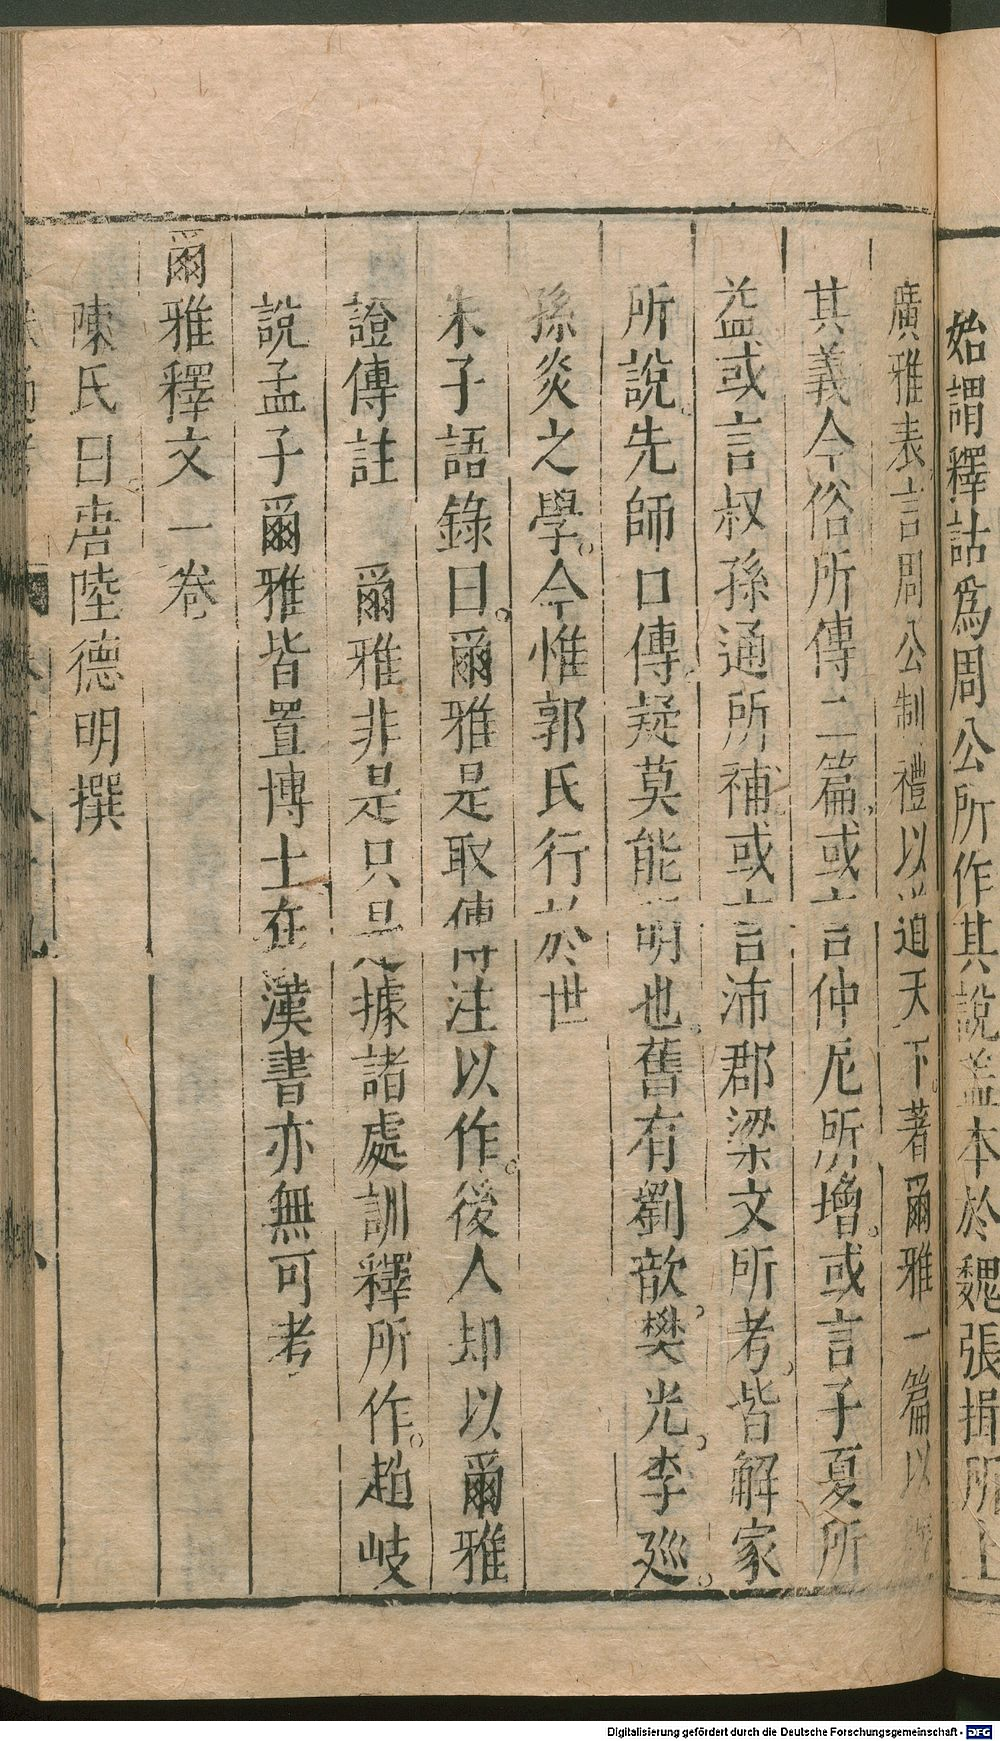 始謂釋詁為周公所作其說盖本於魏張揖所上
廣雅表言周公制禮以道天下著爾雅一篇以
其義今俗所傳二篇或言仲尼所增或言子夏所
益或言叔孫通所補或言沛郡梁文所考皆解家
所說先師口傳疑莫能明也舊有劉歆樊光李廵
孫炎之學今惟郭氏行於世
朱子語錄曰爾雅是取傳注以作後人却以爾雅
證傳註　爾雅非是只是據諸處訓釋所作趙岐
說孟子爾雅皆置博士在漢書亦無可考
爾雅釋文一卷
陳氏曰唐陸德明撰
Digitalisierung gefördert durch die Deutsche Forschungsgemeinschaft - DFG